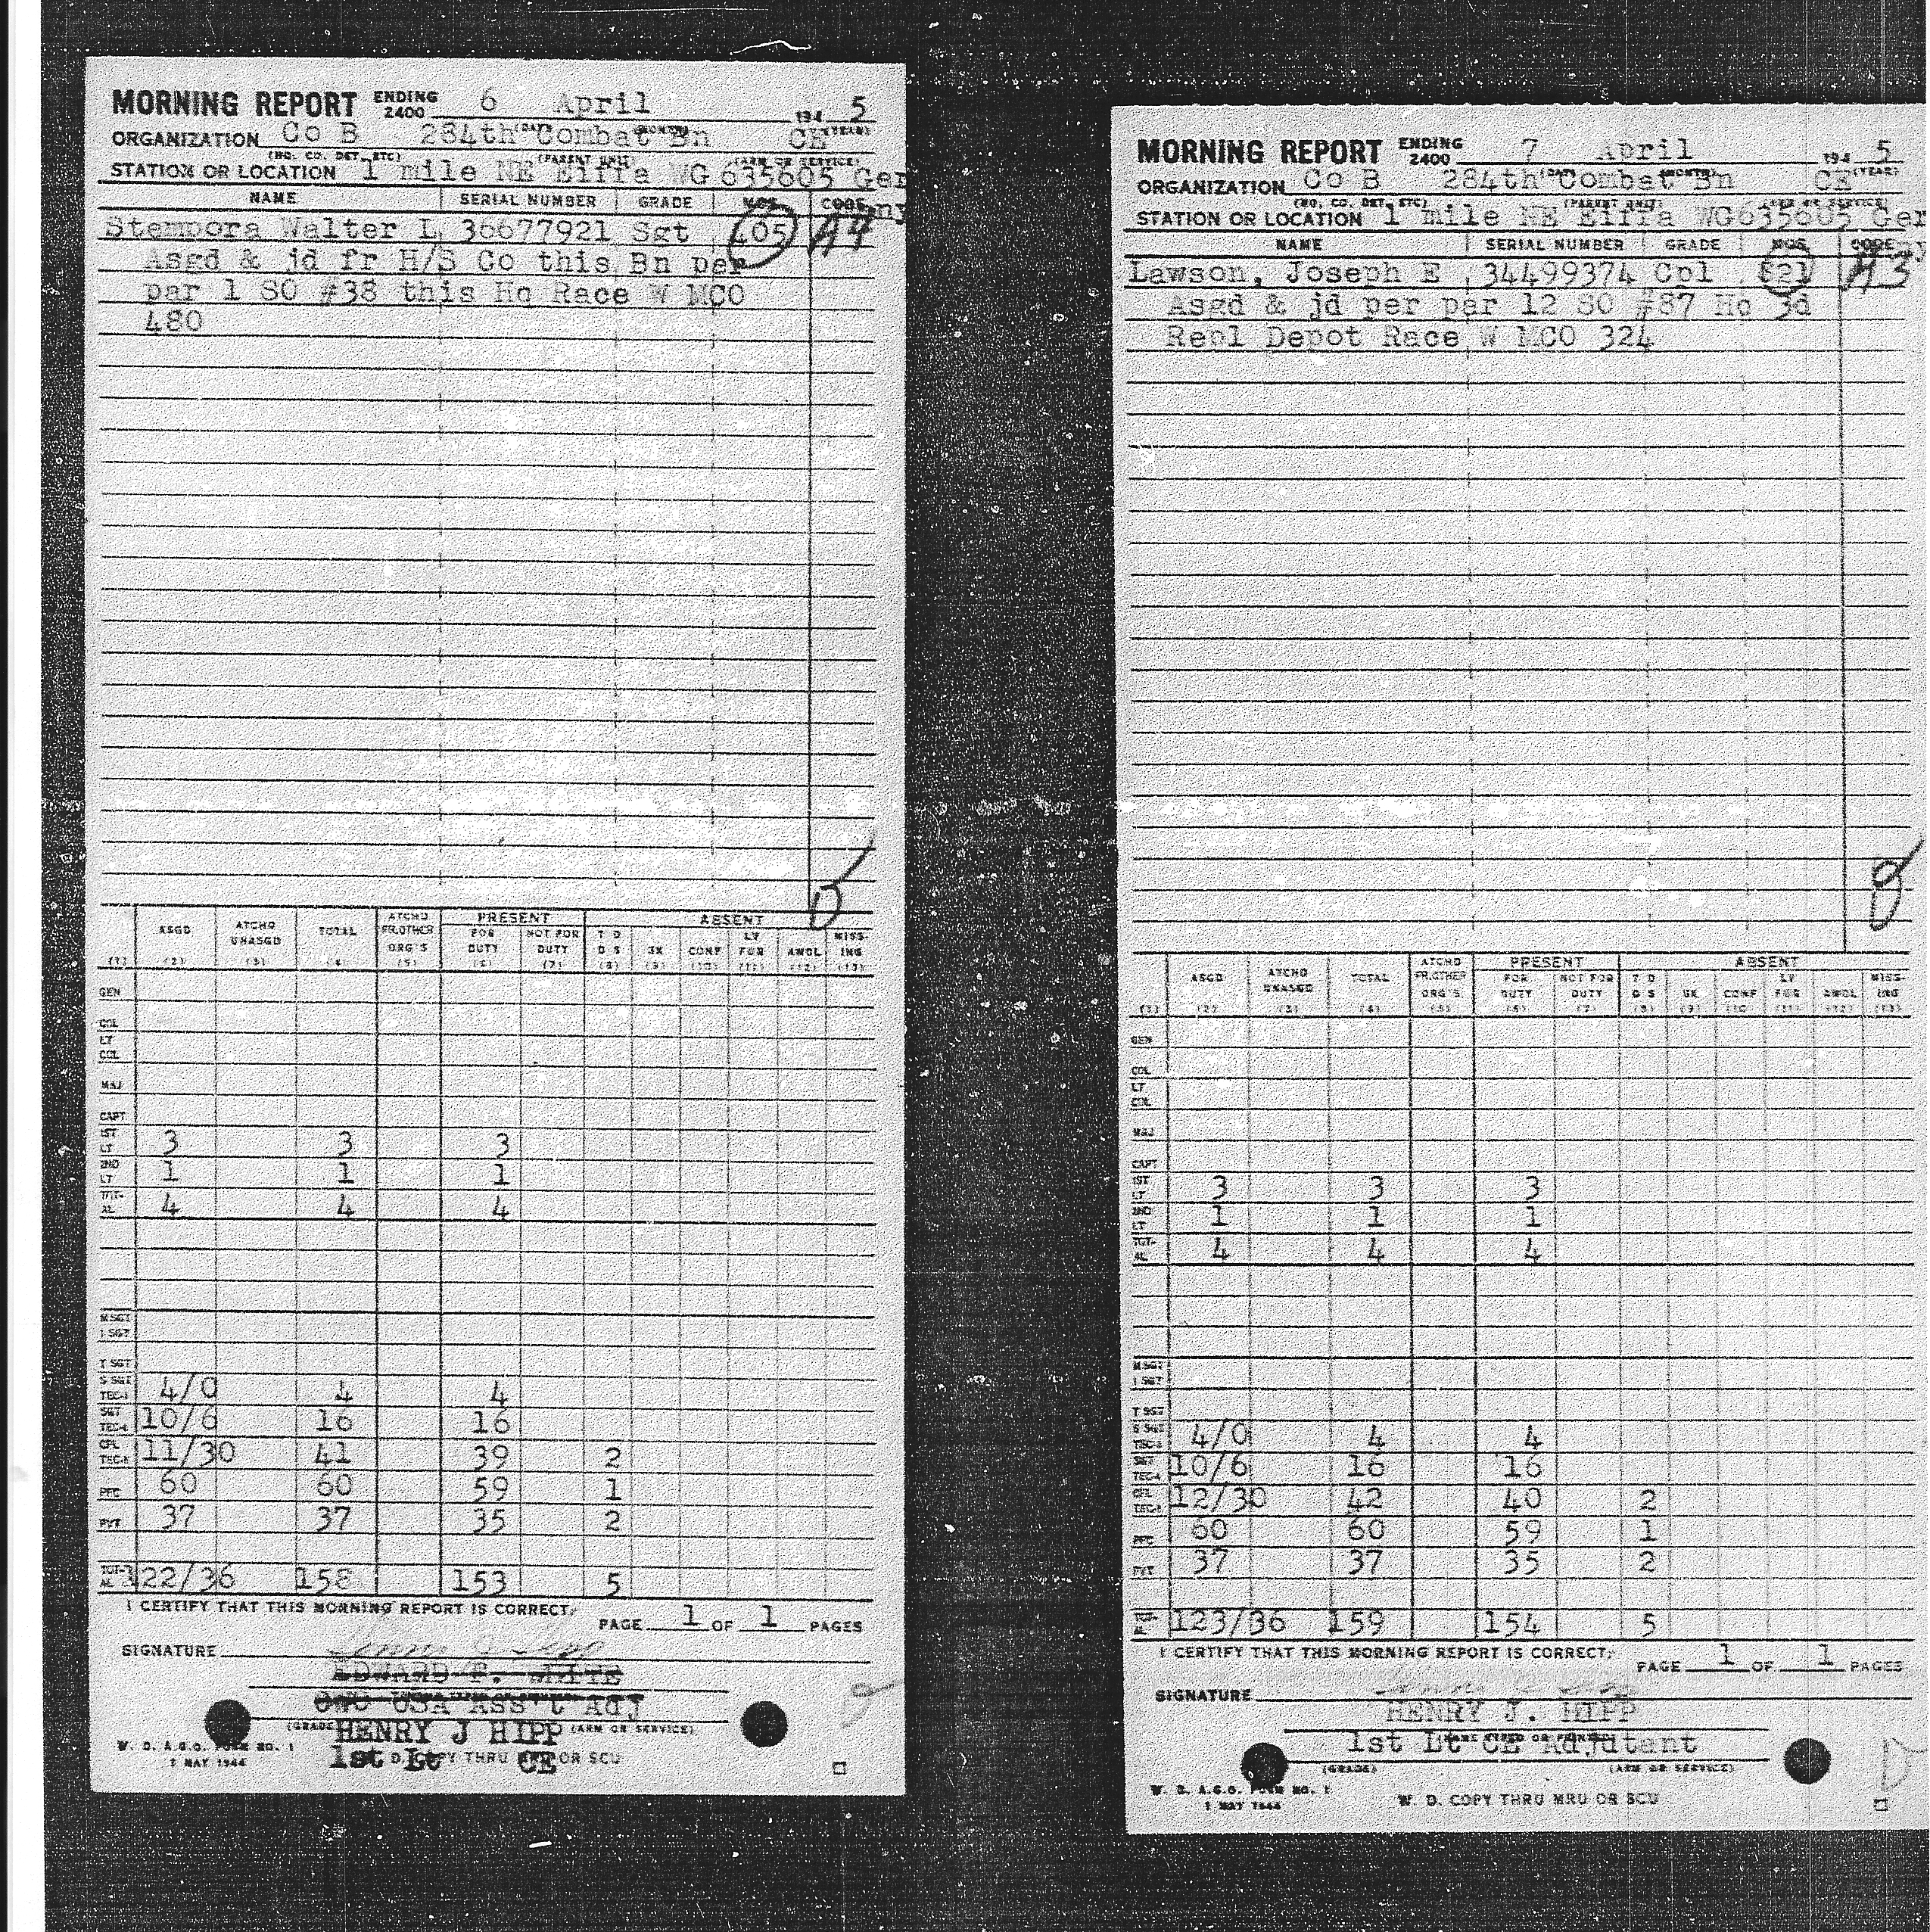 MORNING REPORT ENDING 2400 6 April 194 5
ORGANIZATION Co B 284th Combat Bn CE
(NO. CO. DET. ETC) (PARENT UNIT) (ARM OR SERVICE)
STATION OR LOCATION 1 mile NE Eiffa WG 635605 Ger
NAME SERIAL NUMBER GRADE MOS CODE
Stempora Walter L 36677921 Sgt 405 A4
Asgd & jd fr H/S Co this Bn per
par 1 SO #38 this Hq Race W MCO
480
ASGD ATCHD UNASGD TOTAL ATCHD FR.OTHER ORG'S PRESENT FOR DUTY NOT FOR DUTY ABSENT T D D S SK CONF LV FUR AWOL MISS-ING
(1) (2) (3) (4) (5) (6) (7) (8) (9) (10) (11) (12) (13)
GEN
COL
LT COL
MAJ
CAPT
1ST LT 3 3 3
2ND LT 1 1 1
TOT-AL 4 4 4
M SGT
1 SGT
T SGT
S SGT TEC-3 4/0 4 4
SGT TEC-4 10/6 16 16
CPL TEC-5 11/30 41 39 2
PFC 60 60 59 1
PVT 37 37 35 2
TOT-AL 122/36 158 153 5
I CERTIFY THAT THIS MORNING REPORT IS CORRECT:
PAGE 1 OF 1 PAGES
SIGNATURE
EDWARD F. WHITE
CWO USA Ass't Adj
(GRADE) HENRY J HIPP (ARM OR SERVICE)
1st Lt CE
W. D. COPY THRU MRU OR SCU
W. D. A.G.O. FORM NO. 1
1 MAY 1944
MORNING REPORT ENDING 2400 7 April 194 5
ORGANIZATION Co B 284th Combat Bn CE
(NO. CO. DET. ETC) (PARENT UNIT) (ARM OR SERVICE)
STATION OR LOCATION 1 mile NE Eiffa WG635605 Ger
NAME SERIAL NUMBER GRADE MOS CODE
Lawson, Joseph E 34499374 Cpl 521 A3
Asgd & jd per par 12 SO #87 Hq 3d
Repl Depot Race W MCO 324
ASGD ATCHD UNASGD TOTAL ATCHD FR.OTHER ORG'S PRESENT FOR DUTY NOT FOR DUTY ABSENT T D D S SK CONF LV FUR AWOL MISS-ING
(1) (2) (3) (4) (5) (6) (7) (8) (9) (10) (11) (12) (13)
GEN
COL
LT COL
MAJ
CAPT
1ST LT 3 3 3
2ND LT 1 1 1
TOT-AL 4 4 4
M SGT
1 SGT
T SGT
S SGT TEC-3 4/0 4 4
SGT TEC-4 10/6 16 16
CPL TEC-5 12/30 42 40 2
PFC 60 60 59 1
PVT 37 37 35 2
TOT-AL 123/36 159 154 5
I CERTIFY THAT THIS MORNING REPORT IS CORRECT:
PAGE 1 OF 1 PAGES
SIGNATURE
HENRY J. HIPP
1st Lt CE Adjutant
(GRADE) (ARM OR SERVICE)
W. D. A.G.O. FORM NO. 1
1 MAY 1944
W. D. COPY THRU MRU OR SCU